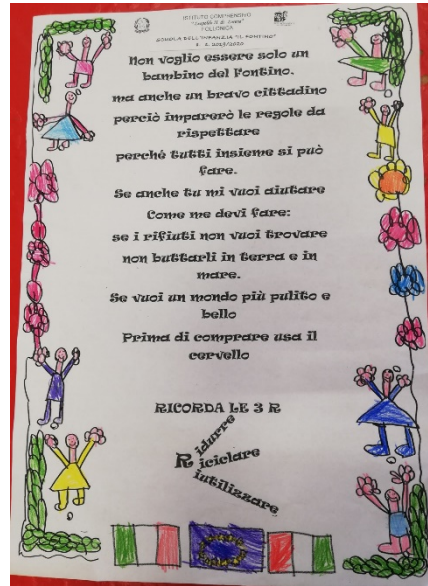 ISTITUTO COMPRENSIVO
FOLLONICA
SCUOLA DELL'INFANZIA "IL FONTINO"
A. S. 2019/2020
Non voglio essere solo un
bambino del Fontino.
ma anche un bravo cittadino
perciò imparerò le regole da
rispettare
perché tutti insieme si può
fare.
Se anche tu mi vuoi aiutare
Come me devi fare:
se i rifiuti non vuoi trovare
non buttarli in terra e in
mare.
Se vuoi un mondo più pulito e
bello
Prima di comprare usa il
cervello
RICORDA LE 3 R
R idurre
iciclare
iutilizzare